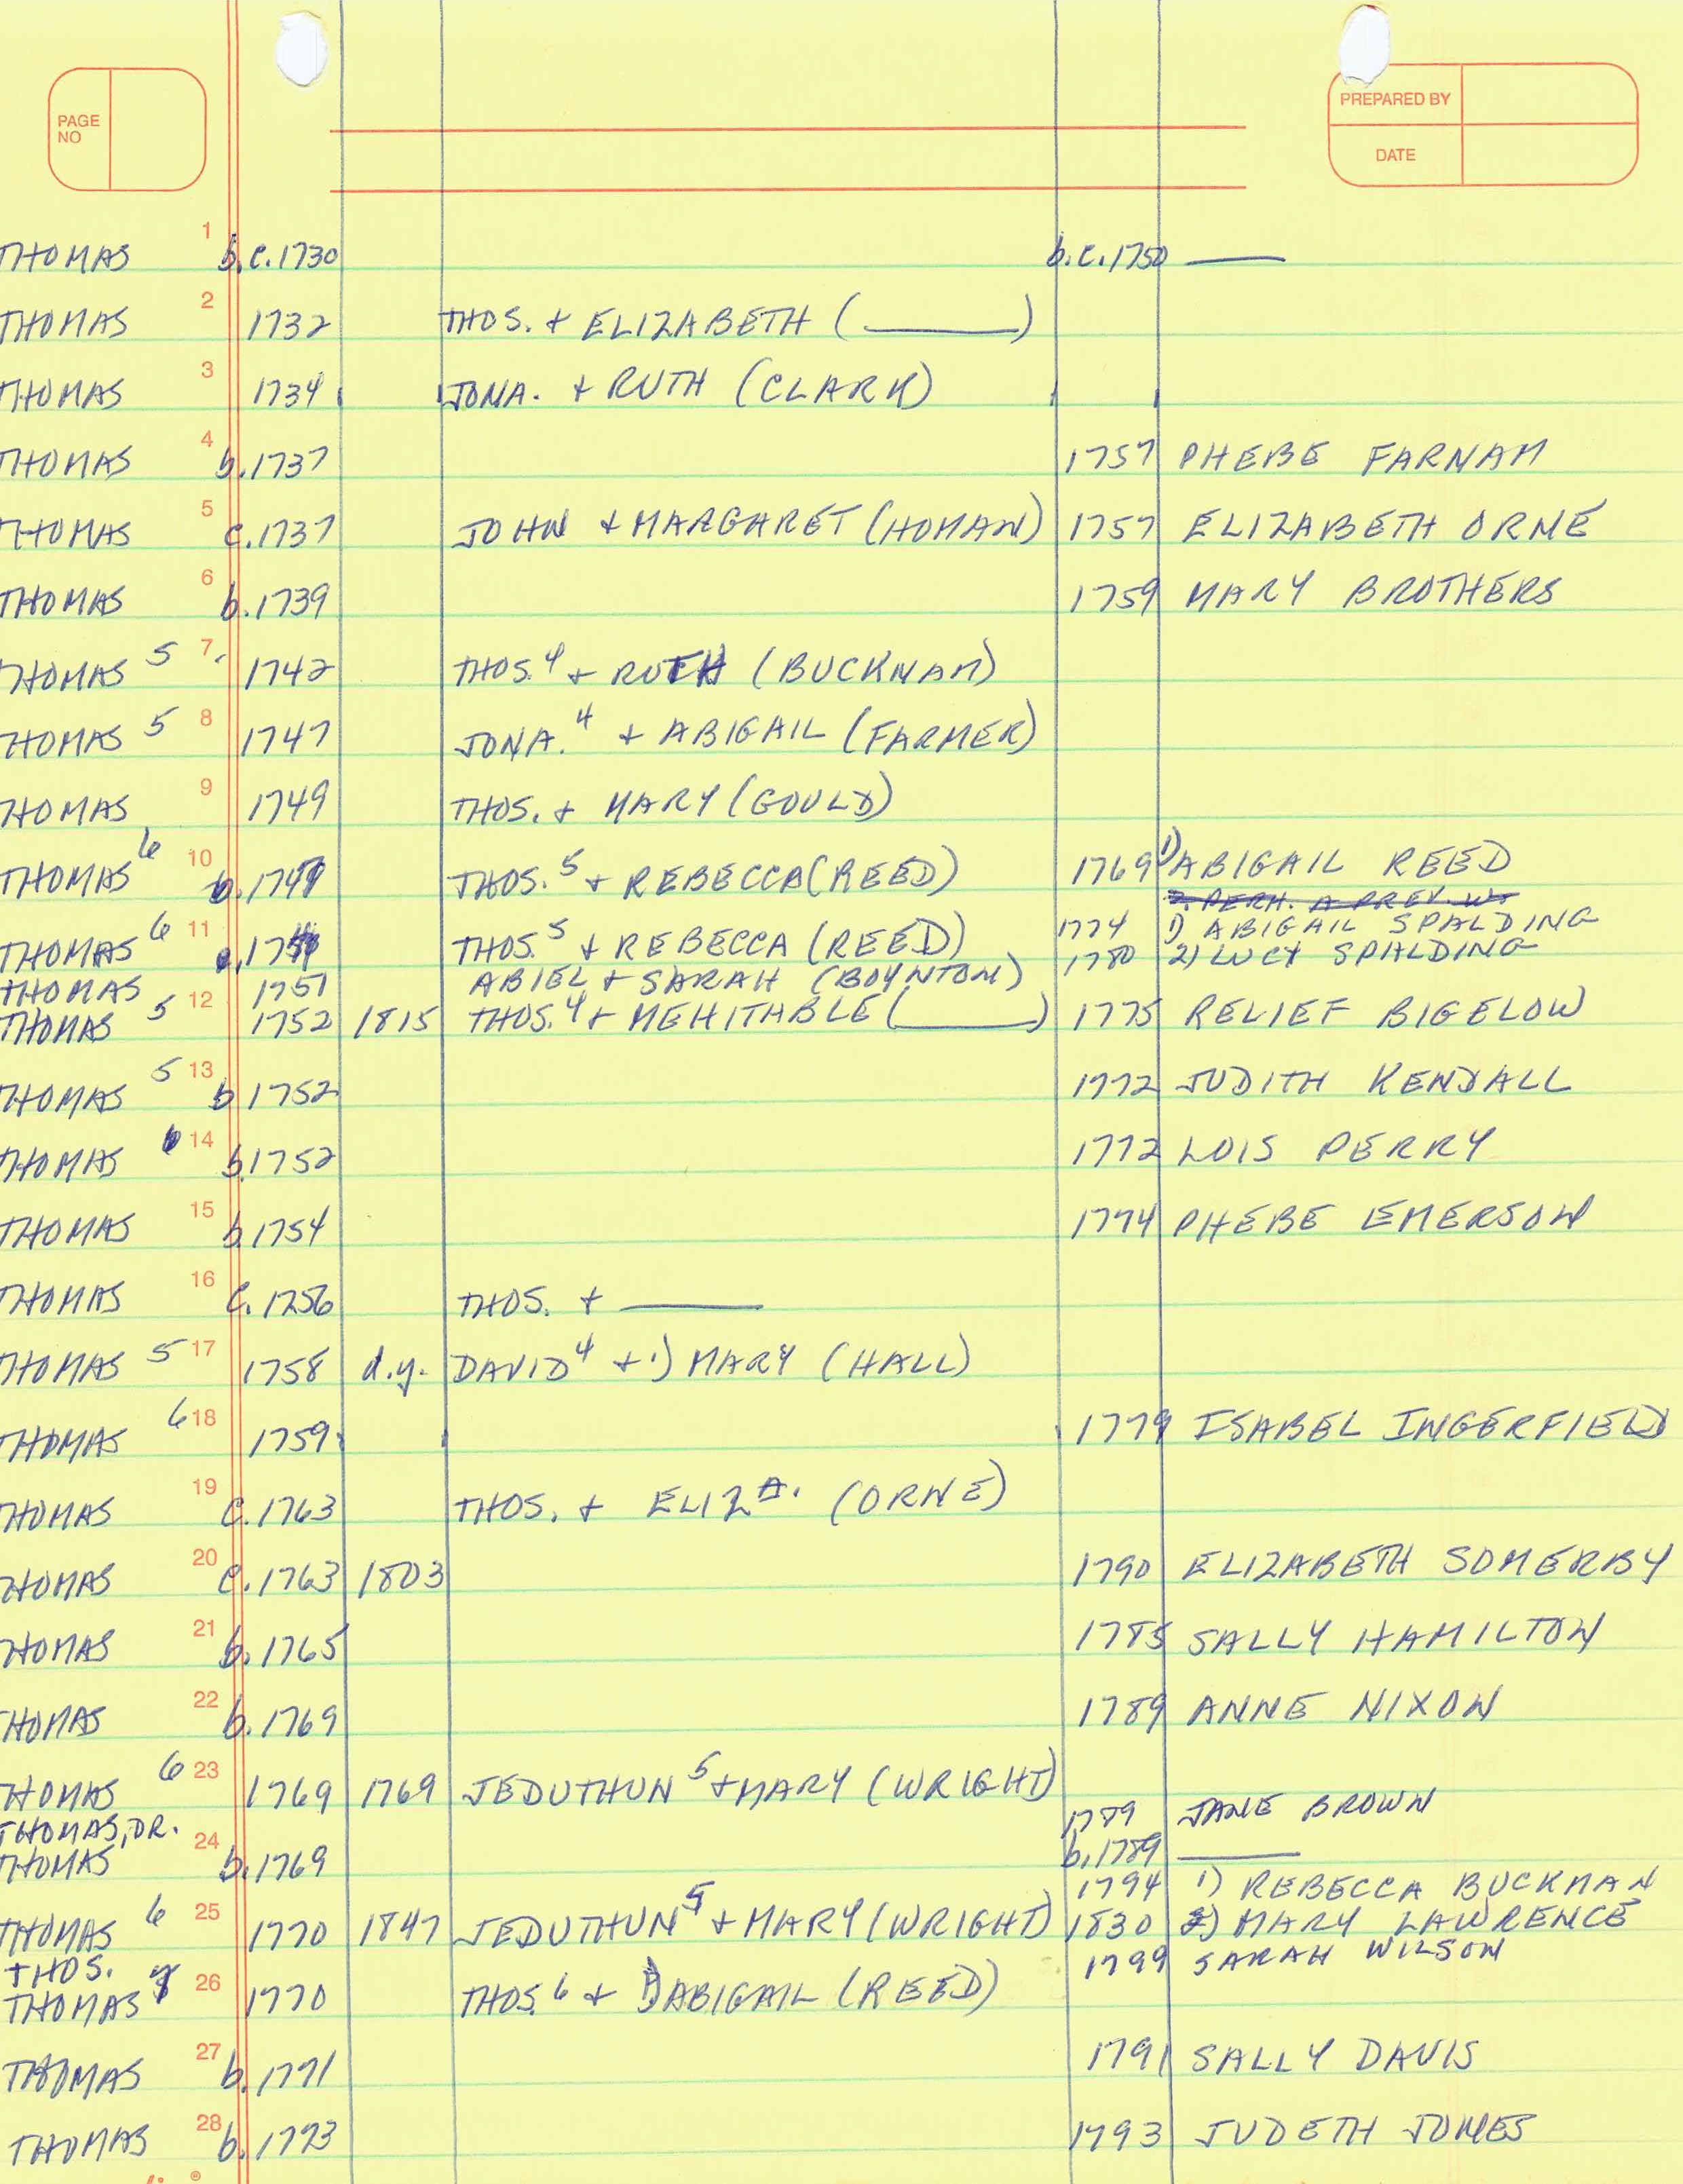 PAGE NO
PREPARED BY
DATE
1 THOMAS b.c.1730 b.c.1750 ——
2 THOMAS 1732 THOS. + ELIZABETH (______)
3 THOMAS 1734 JONA. + RUTH (CLARK)
4 THOMAS b.1737 1757 PHEBE FARNAM
5 THOMAS c.1737 JOHN + MARGARET (HOMAN) 1757 ELIZABETH ORNE
6 THOMAS b.1739 1759 MARY BROTHERS
7 THOMAS 5 1742 THOS.4 + RUTH (BUCKNAM)
8 THOMAS 5 1747 JONA.4 + ABIGAIL (FARMER)
9 THOMAS 1749 THOS. + MARY (GOULD)
10 THOMAS 6 b.1749 THOS.5 + REBECCA (REED) 1769 1) ABIGAIL REED
11 THOMAS 6 THOS.5 + REBECCA (REED) 1774 1) ABIGAIL SPALDING
1780 2) LUCY SPALDING
THOMAS 1751 ABIEL + SARAH (BOYNTON)
12 THOMAS 5 1752 1815 THOS.4 + MEHITABLE (______) 1775 RELIEF BIGELOW
13 THOMAS 5 b 1752 1772 JUDITH KENDALL
14 THOMAS 6 b.1752 1772 LOIS PERRY
15 THOMAS b.1754 1774 PHEBE EMERSON
16 THOMAS c.1756 THOS. + ——
17 THOMAS 5 1758 d.y. DAVID4 + 1) MARY (HALL)
18 THOMAS 6 1759 1779 ISABEL INGERFIELD
19 THOMAS c.1763 THOS. + ELIZA. (ORNE)
20 THOMAS c.1763 1803 1790 ELIZABETH SOMERBY
21 THOMAS b.1765 1785 SALLY HAMILTON
22 THOMAS b.1769 1789 ANNE NIXON
23 THOMAS 6 1769 1769 JEDUTHUN5 + MARY (WRIGHT)
THOMAS, DR. 1789 JANE BROWN
24 THOMAS b.1769 b.1789 ——
1794 1) REBECCA BUCKMAN
25 THOMAS 6 1770 1847 JEDUTHUN5 + MARY (WRIGHT) 1830 2) MARY LAWRENCE
THOS. 1799 SARAH WILSON
26 THOMAS 7 1770 THOS.6 + 1) ABIGAIL (REED)
27 THOMAS b.1771 1791 SALLY DAVIS
28 THOMAS b.1773 1793 JUDETH JONES